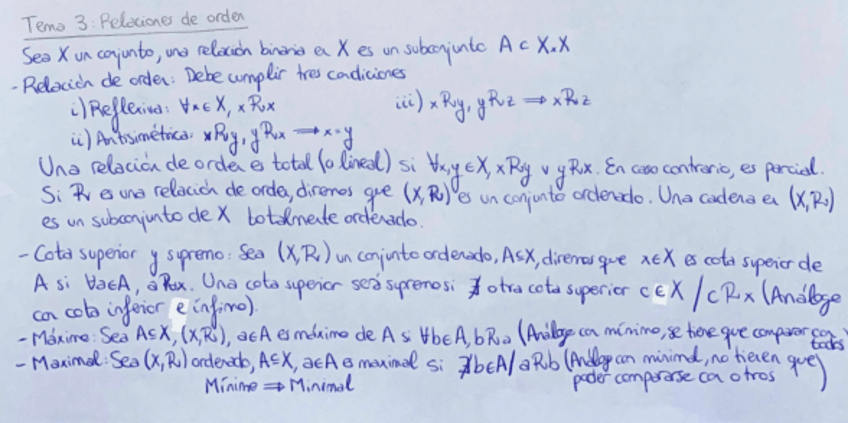 Tema 3: Relaciones de orden
Sea X un conjunto, una relación binaria en X es un subconjunto A ⊂ X×X
- Relación de orden: Debe cumplir tres condiciones
i) Reflexiva: ∀x∈X, xRx iii) xRy, yRz ⟹ xRz
ii) Antisimétrica: xRy, yRx ⟹ x=y
Una relación de orden es total (o lineal) si ∀x,y∈X, xRy ∨ yRx. En caso contrario, es parcial.
Si R es una relación de orden, diremos que (X,R) es un conjunto ordenado. Una cadena en (X,R)
es un subconjunto de X totalmente ordenado.
- Cota superior y supremo: Sea (X,R) un conjunto ordenado, A⊆X, diremos que x∈X es cota superior de
A si ∀a∈A, aRx. Una cota superior será supremo si ∄ otra cota superior c∈X / cRx (Análogo
con cota inferior e ínfimo).
- Máximo: Sea A⊆X, (X,R), a∈A es máximo de A si ∀b∈A, bRa (Análogo con mínimo, se tiene que comparar con todos)
- Maximal: Sea (X,R) ordenado, A⊆X, a∈A es maximal si ∄b∈A / aRb (Análogo con minimal, no tienen que
poder compararse con otros)
Mínimo ⟹ Minimal